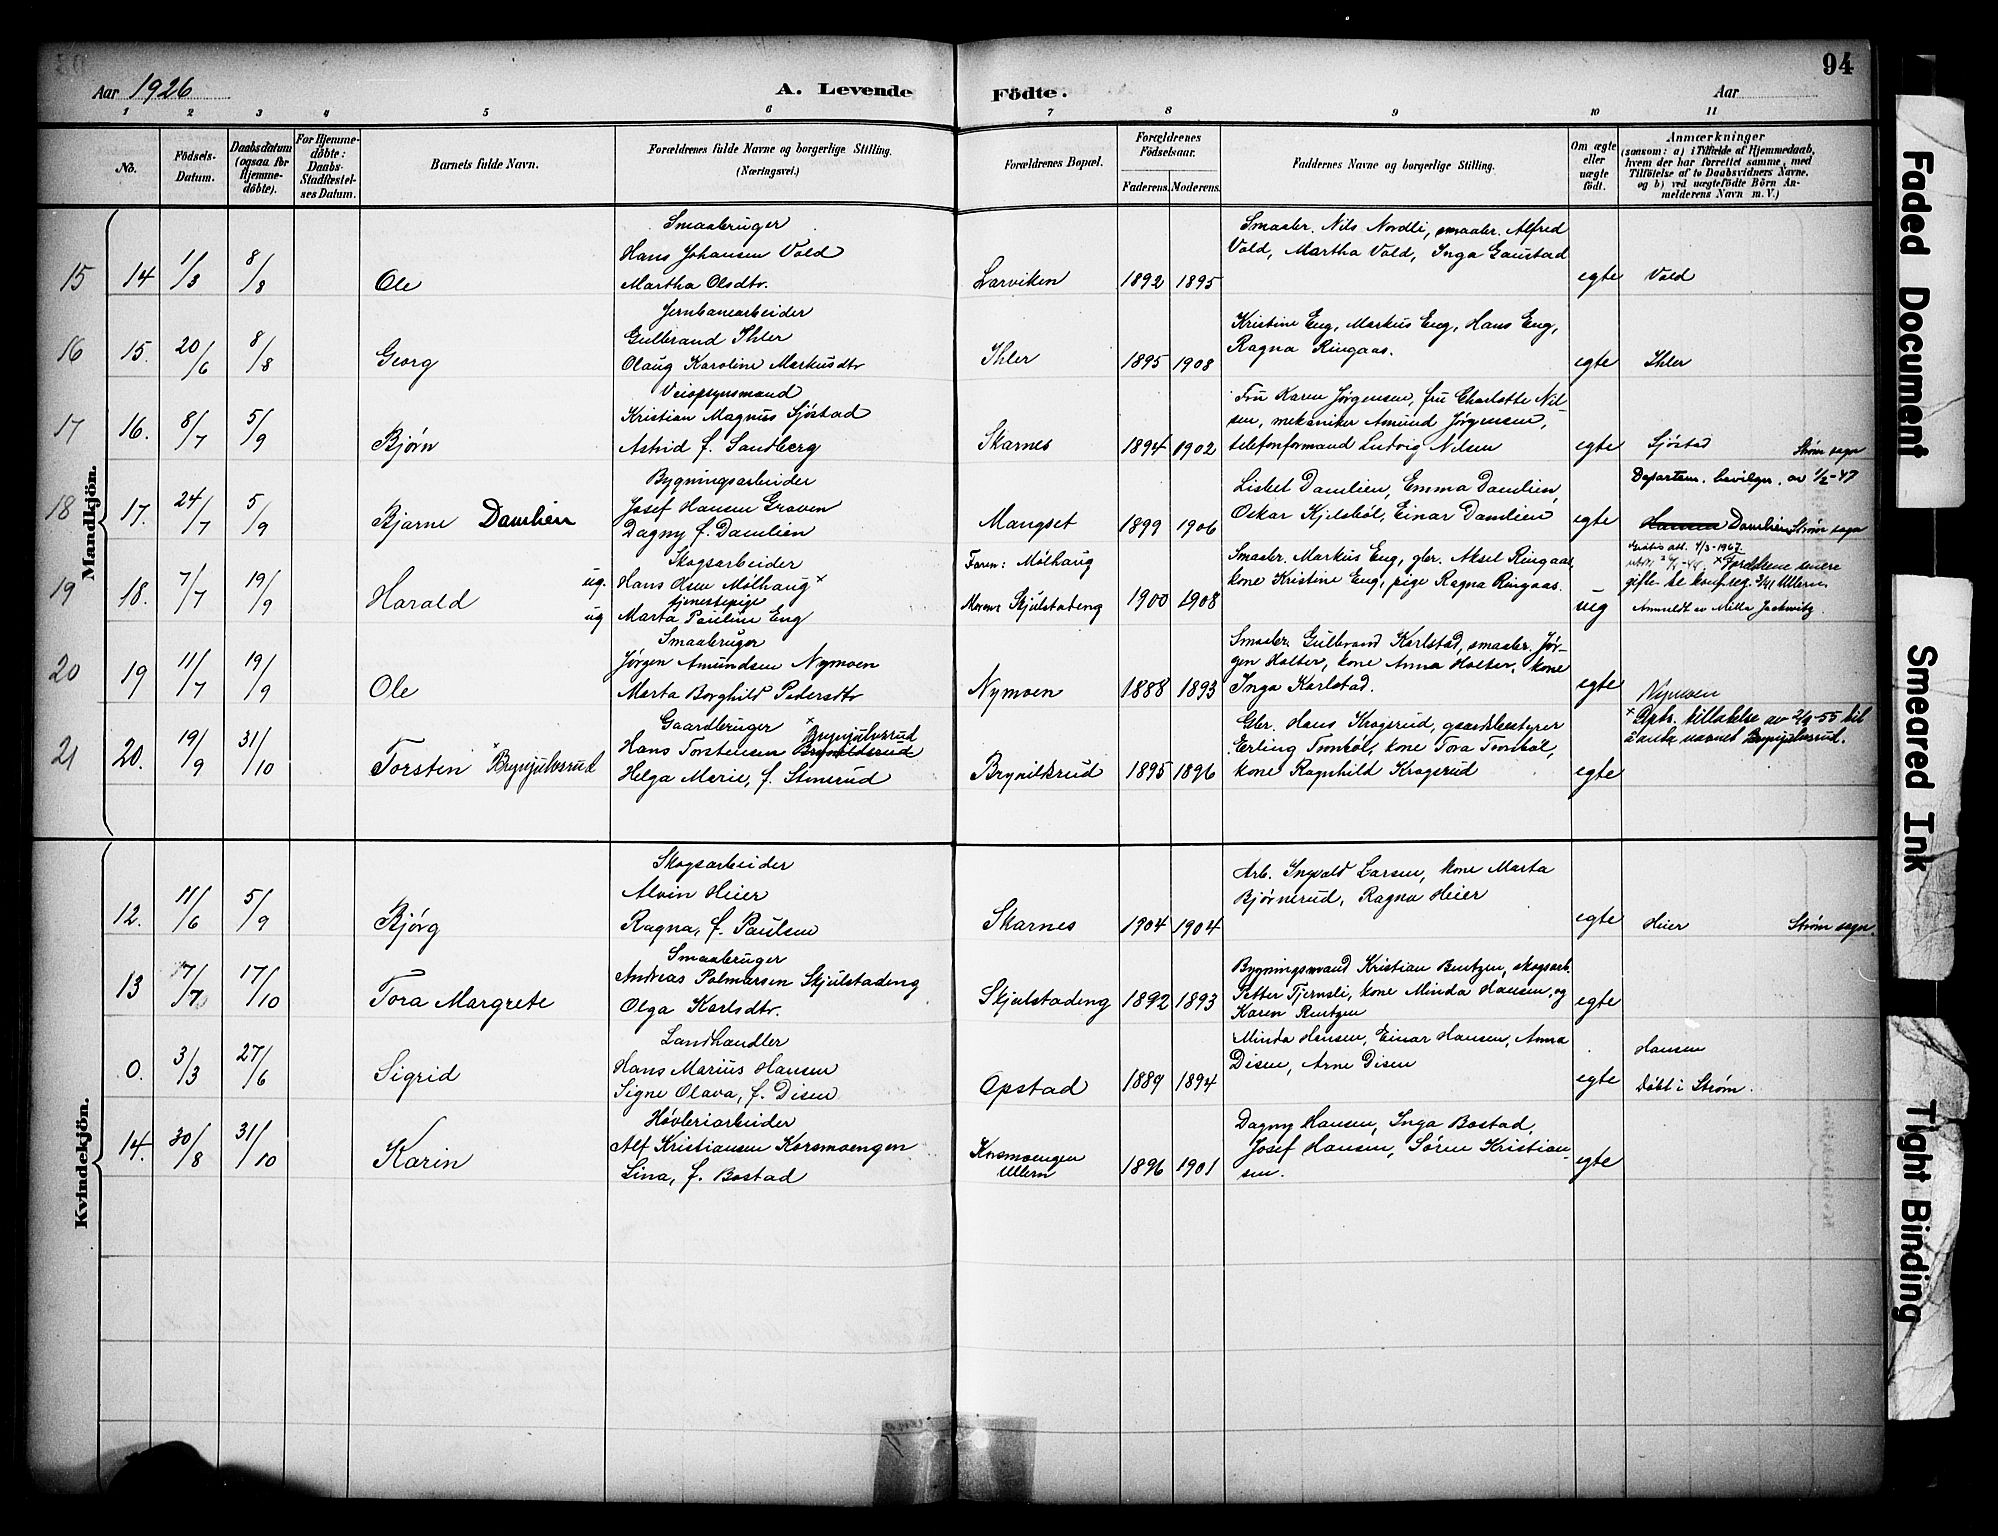 94
Aar 1926
A. Levende
Födte.
Aar
1 2 3 4 5 6 7 8 9 10 11
No.
Födsels-
Datum.
Daabsdatum
(ogsaa for
Hjemme-
döbte).
For Hjemme-
döbte:
Daabs-
Stadfæstel-
ses Datum.
Barnets fulde Navn.
Forældrenes fulde Navne og borgerlige Stilling.
(Næringsvei.)
Forældrenes Bopæl.
Forældrenes
Födselsaar.
Faderens. Moderens.
Faddernes Navne og borgerlige Stilling.
Om ægte
eller
uægte
födt.
Anmærkninger
(saasom: a) i Tilfælde af Hjemmedaab,
hvem der har forrettet samme, med
Tilföielse af to Daabsvidners Navne,
og b) ved uægtefödte Börn An-
melderens Navn m. V.)
Mandkjön.
15 14 1/3 8/8 Ole
Smaabruger
Hans Johansen Vold
Martha Olsdtr.
Larviken 1892 1895
Smaabr. Nils Nordli, smaabr. Alfred
Vold, Martha Vold, Inga Gaustad
egte Vold
16 15. 20/6 8/8 Georg
Jernbanearbeider
Gulbrand Ihler
Olaug Karoline Markusdtr
Ihler 1895 1908
Kristine Eng, Markus Eng, Hans Eng,
Ragna Ringaas.
egte Ihler
17 16. 8/7 5/9 Bjørn
Veiopsynsmand
Kristian Magnus Sjøstad
Astrid f. Sandberg
Skarnes 1894 1902
Fru Karen Jørgensen, fru Charlotte Nil-
sen, mekaniker Amund Jørgensen,
telefonformand Ludvig Nilsen
egte Sjøstad Strøm sogn
18 17. 24/7 5/9 Bjarne Damlien
Bygningsarbeider
Josef Hansen Graven
Dagny f. Damlien
Mangset 1899 1906
Lisbet Damlien, Emma Damlien,
Oskar Kjelsbøl, Einar Damlien
egte
Departem. bevilgn. av 1/2-47
Hansen Damlien Strøm sogn
19 18. 7/7 19/9 Harald
Skogsarbeider
ug. Hans Olsen Mølhaug x
tjenestepige
ug Marta Pauline Eng
Faren: Mølhaug
Moren: Skjulstadeng 1900 1908
Smaabr. Markus Eng, gbr. Aksel Ringaas
kone Kristine Eng, pige Ragna Ringaas.
ug
4/3-1967
x Forældrene senere
gifte
Anmeldt av Milla Jackwitz.
20 19 11/7 19/9 Ole
Smaabruger
Jørgen Amundsen Nymoen
Marta Borghild Pedersdtr
Nymoen 1888 1893
Smaabr. Gulbrand Karlstad, smaabr. Jør-
gen Holter, kone Anna Holter, kone
Inga Karlstad.
egte Nymoen
21 20. 19/9 31/10 Torsten x Brynjulvsrud
Gaardbruger x Brynjulvsrud
Hans Torstensen Brynildsrud
Helga Marie, f. Stenerud
Brynilksrud 1895 1896
Gbr. Hans Krogsrud, gaardsbestyrer
Erling Tronbøl, kone Tora Tronbøl,
kone Ragnhild Krogsrud
egte
x Dpts. tillatelse av 2/9-55 til
å anta navnet Brynjulvsrud.
Kvindekjön.
12. 11/6 5/9 Bjørg
Skogsarbeider
Alvin Heier
Ragna, f. Paulsen
Skarnes 1904 1904
Arb. Ingvald Larsen, kone Marta
Bjørnerud, Ragna Heier
egte Heier Strøm sogn.
13 7/7 17/10 Tora Margrete
Smaabruger
Andreas Palmarsen Skjulstadeng
Olga Karlsdtr.
Skjulstadeng 1892 1893
Bygningsmand Kristian Bentzen, skogsarb.
Petter Tjernsli, kone Minda Hansen, og
Karen Bentzen
egte
0. 3/3 27/6 Sigrid
Landhandler
Hans Marius Hansen
Signe Olava, f. Disen
Opstad 1889 1894
Minda Hansen, Einar Hansen, Anna
Disen, Arne Disen
egte
Hansen
Døbt i Strøm.
14. 30/8 31/10 Karin
Høvleriarbeider
Alf Kristiansen Korsmoengen
Lina, f. Bostad
Korsmoengen
Ullern 1896 1901
Dagny Hansen, Inga Bostad,
Josef Hansen, Søren Kristian-
sen.
egte
Faded Document
Smeared Ink
Tight Binding